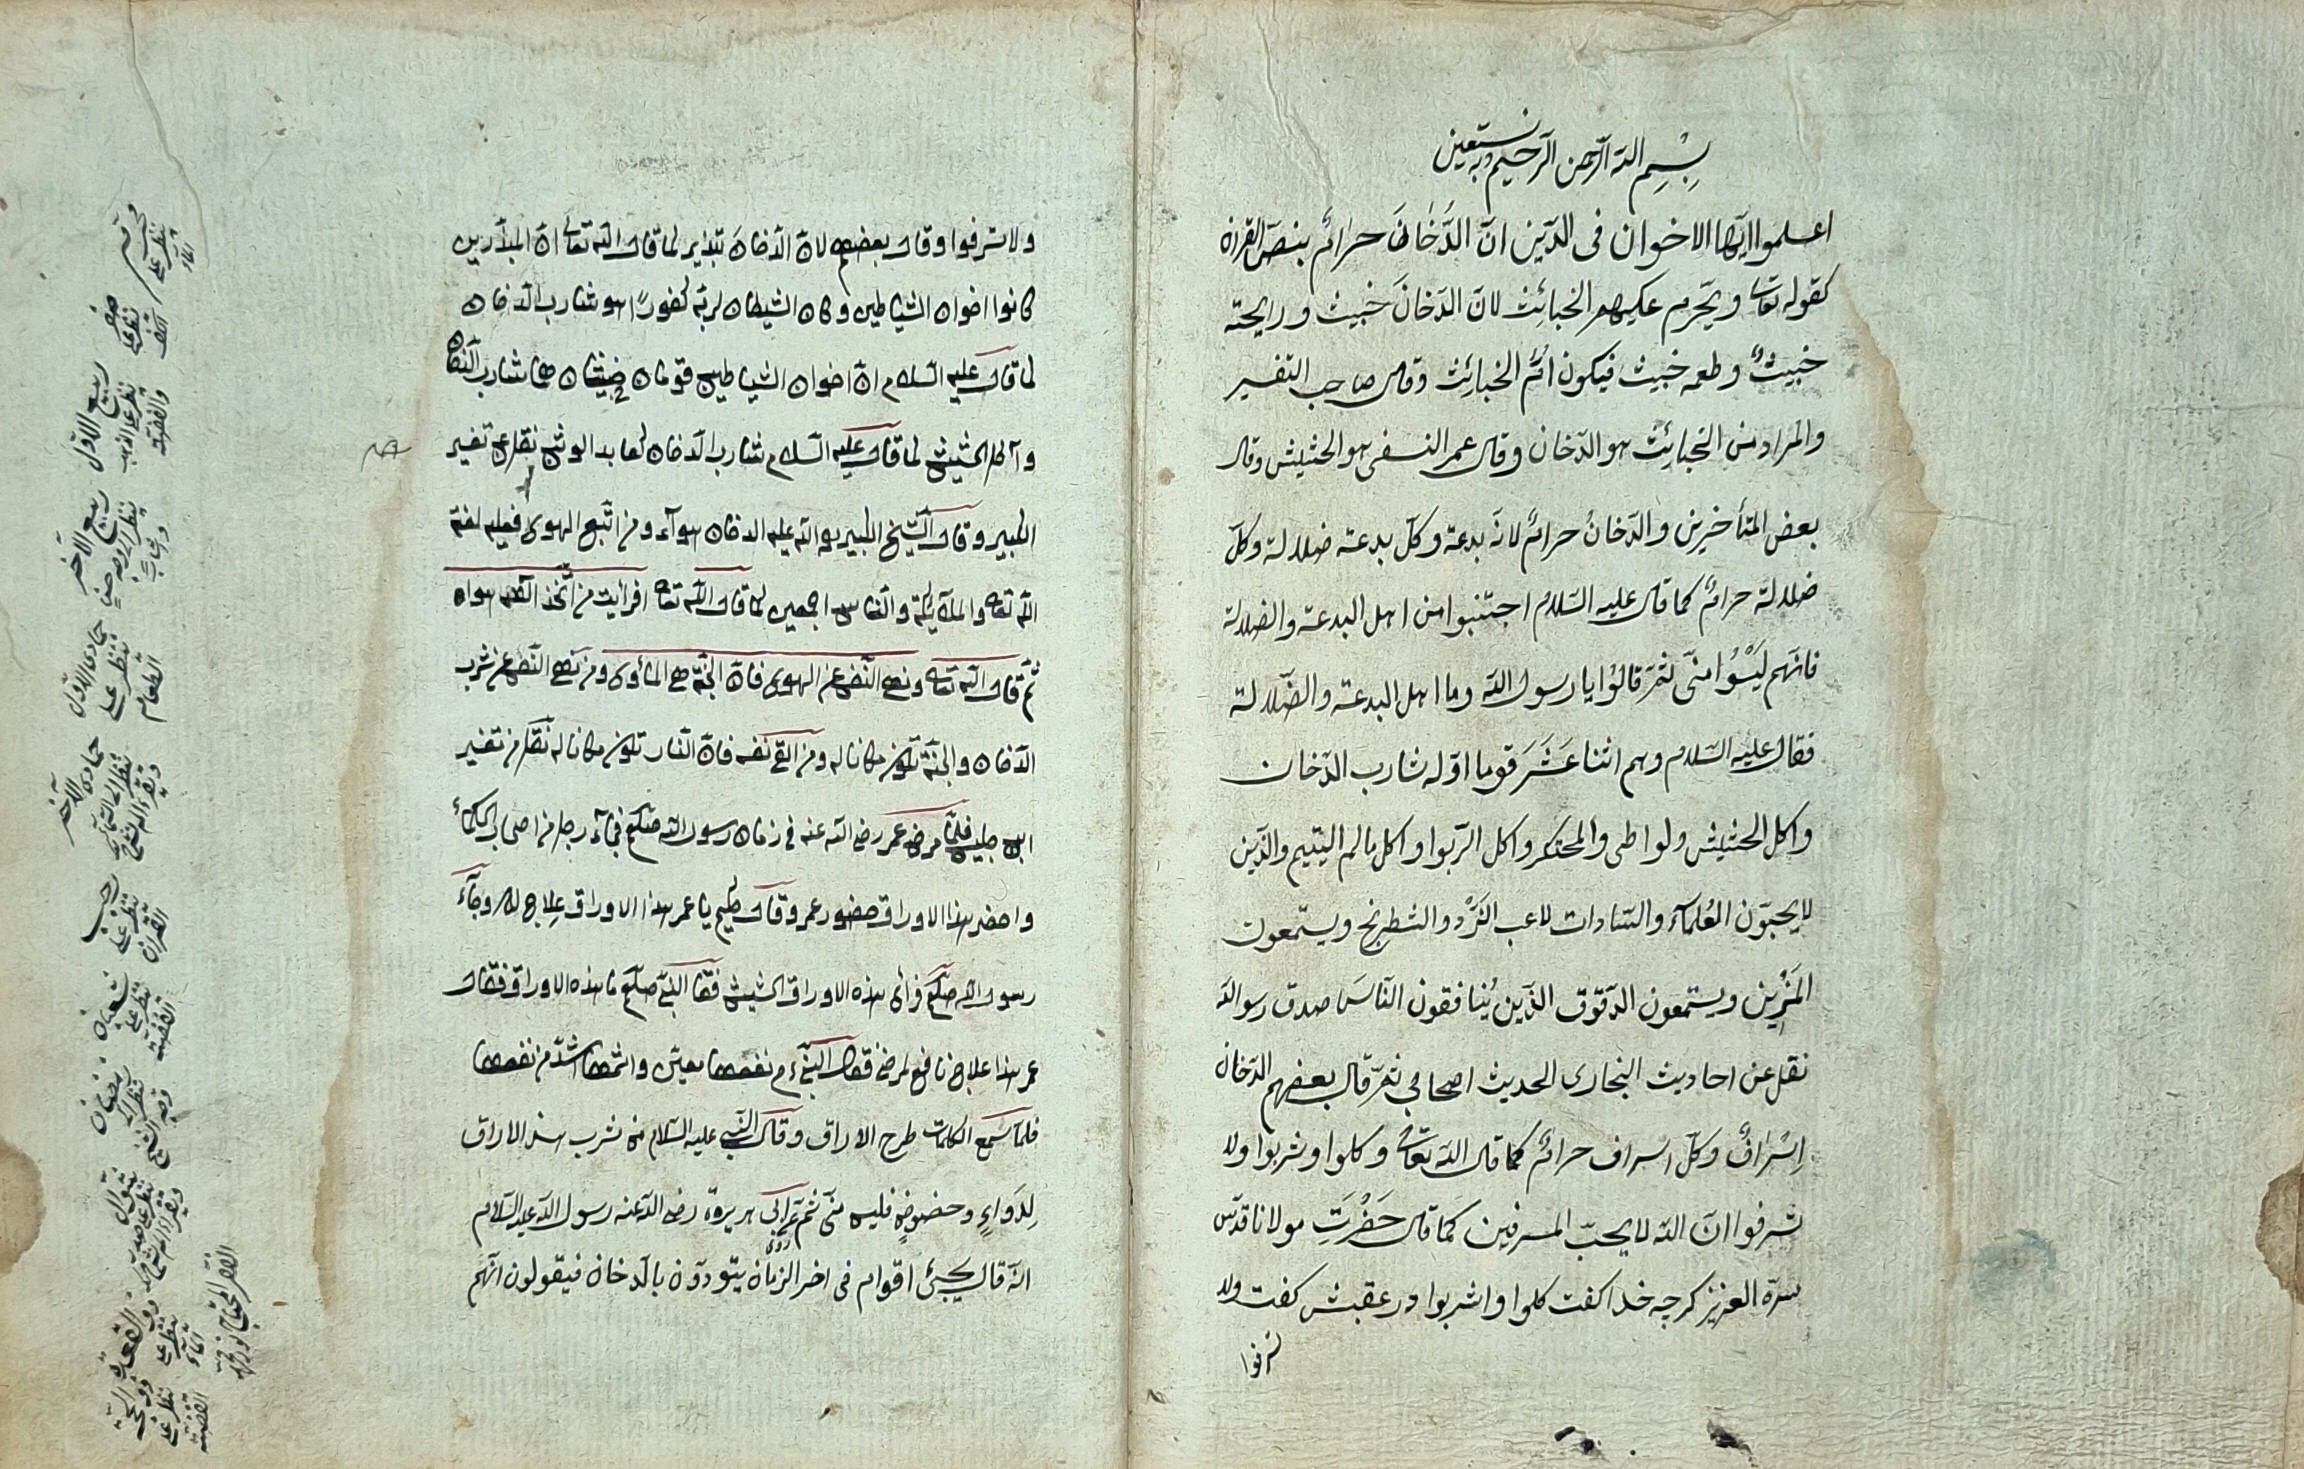 بِسْمِ الله الرّحمن الرّحيم وبه نستعين
اعلموا ايّها الاخوان فى الدّين انّ الدُّخٰانَ حرامٌ بنصّ القران
كقوله تعالى ويحّرم عليهم الخبائِث لانّ الدّخانَ خبيث ورايحته
خبيثٌ وطعمه خبيث فيكون امُّ الخبائِث وقال صاحب التفسير
والمراد من الخبائِث هو الدّخان وقال عمر النسفى هو الحشيش وقال
بعض المتأخيرين والدّخانُ حرامٌ لانّه بدعة وكلّ بدعة ضلالة وكلّ
ضلالة حرامٌ كما قال عليه السّلام اجتنبوا من اهل البدعة والضلالة
فانّهم لَيْسُوا منّى ثمّ قالوُا يا رسول الله وما اهل البدعة والضّلالة
فقال عليه السّلام وهم اثنا عَشَرَ قوما اوّله شارب الدّخان
واكل الحشيش ولواطى والمحتكر واكل الرّبوا واكل مالم اليتيم والذّين
لا يحبوّن العُلمآء والسّادات لاعب النَرْد والشطرنج ويستمعون
المَزِْين ويستمعون الدّقوق الذّين يُنافقون النّاسَ صدق رسوالله
نقل عن احاديث البخارى الحديث اصحابى ثمّ قال بعضهم الدّخان
اِسْرٰافٌ وكلّ اسراف حرامٌ كما قال الله تعالى وكلوا وشربوا ولا
تسرفوا انّ الله لا يحبّ المسرفين كما قال حَضْرَتِ مولانا قدّس
سرّه العزيز كرچه خدا كفت كلوا واشربوا در عقبش كفت ولا
تسرفوا
ولا تسرفوا وقال بعضهم لانّ الدّخانَ تبذير لما قال الله تعالى انّ المبذّرين
كانوا اخوان الشياطين وكان الشيطان لربّه كفورًا هو شارب الدّخان
لما قال عليه السّلام انّ اخوان الشياطين قومان خبيثان هما شارب الدّخان
وآكل الحشيش لما قال عليه السّلام شارب الدّخان كعابد الوثن نقل عن تفسير
الكبير وقال الشّيخ الكبير الدخان سوآء ومن اتّبع الهوى فعليه لعنة
الله تعالى والملآئِكة والنّاس اجمعين كما قال الله تعالى افرأيت من اتّخذ الٓهه هواه
ثمّ قال الله تعالى ونهى النّفس عن الهوى فانّ الجنّة هى المأوى ومن نهى النّفس عن شرب
الدّخان والجنّة تكون مكانا له ومن القى نفسه فانّ النّار تكون مكانا له نقل من تفسير
فلمّا مرض عمر رضى الله عنه فى زمان رسول الله صلعم فجآء رجل من اصحاب الحكمآء
واحضر هذا الاوراق حضور عمر وقال حكيم يا عمر هذا الاوراق عِلاج لك وجآء
رسول الله صلعم فرأى هذه الاوراق الحشيش فقال النبىّ صلّعم ما هذه الاوراق فقال
عمر هذا علاج نافع لمرضى فقال النبىّ ءم نفعها معيّن واثمها اشدّ من نفعها
فلمّا سَمع الكلمات طرح الاراق وقال النّبى عليه السّلام من شرب هذ الاراق
لِدَواءٍ وخصوصٍ فليس منّى ثمّ عن ابى هريروه رضى الله عنه رسول الله عليه السّلام
روى
انّه قال يجئ اقوام فى اخر الزمان يتودّون بالدّخان فيقولون انّهم
محرّم
تنظر على
المآء
صفر
تنظر على
ربيع الاوّل
والفضّة
ربيع الآخر
جمادى الاوّل
تنظر على
الطعام
جمادى الآخر
رجب
تنظر على
القرآن
شعبان
تنظر على
الفضّة
رمضان
شوّال
ذو القعده
تنظر على
ذو الحجّة
تنظر على
الفضّة
الفقر المحتاج نور محمّد